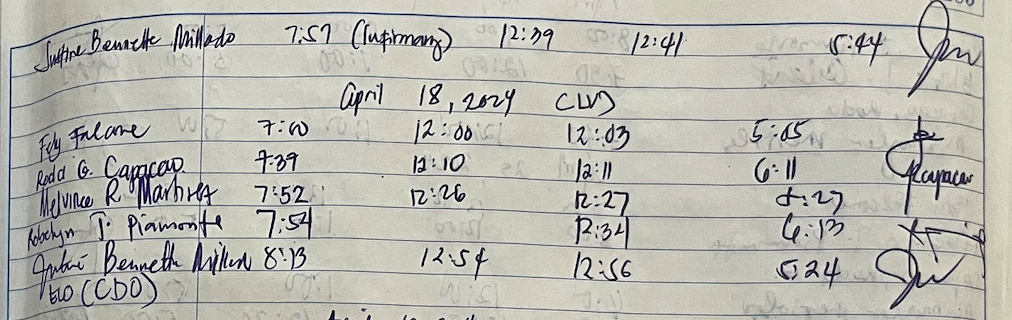 Justine Bennette Millado 7:57 (Infirmary) 12:39 12:41 5:44
April 18, 2024 (LVD)
Fely Falame 7:00 12:00 12:03 5:05
Roda G. Capacao 7:39 12:10 12:11 6:11
Melvince R. Martirez 7:52 12:26 12:27 5:27
Robelyn T. Piamonte 7:54 12:34 6:13
Bennette 8:13 12:54 12:56 5:24
(CDO)